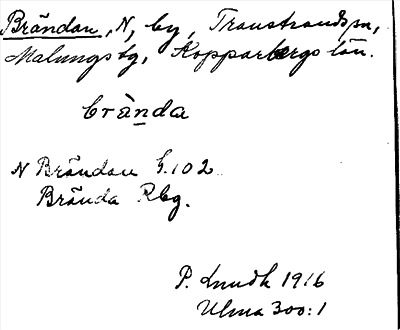 Brändan, N, by, Transtrands sn,
Malungs tg, Kopparbergs län.
brànda
N Brändan G.102
Brända Rbg.
P. Lundh 1916
Ulma 300:1